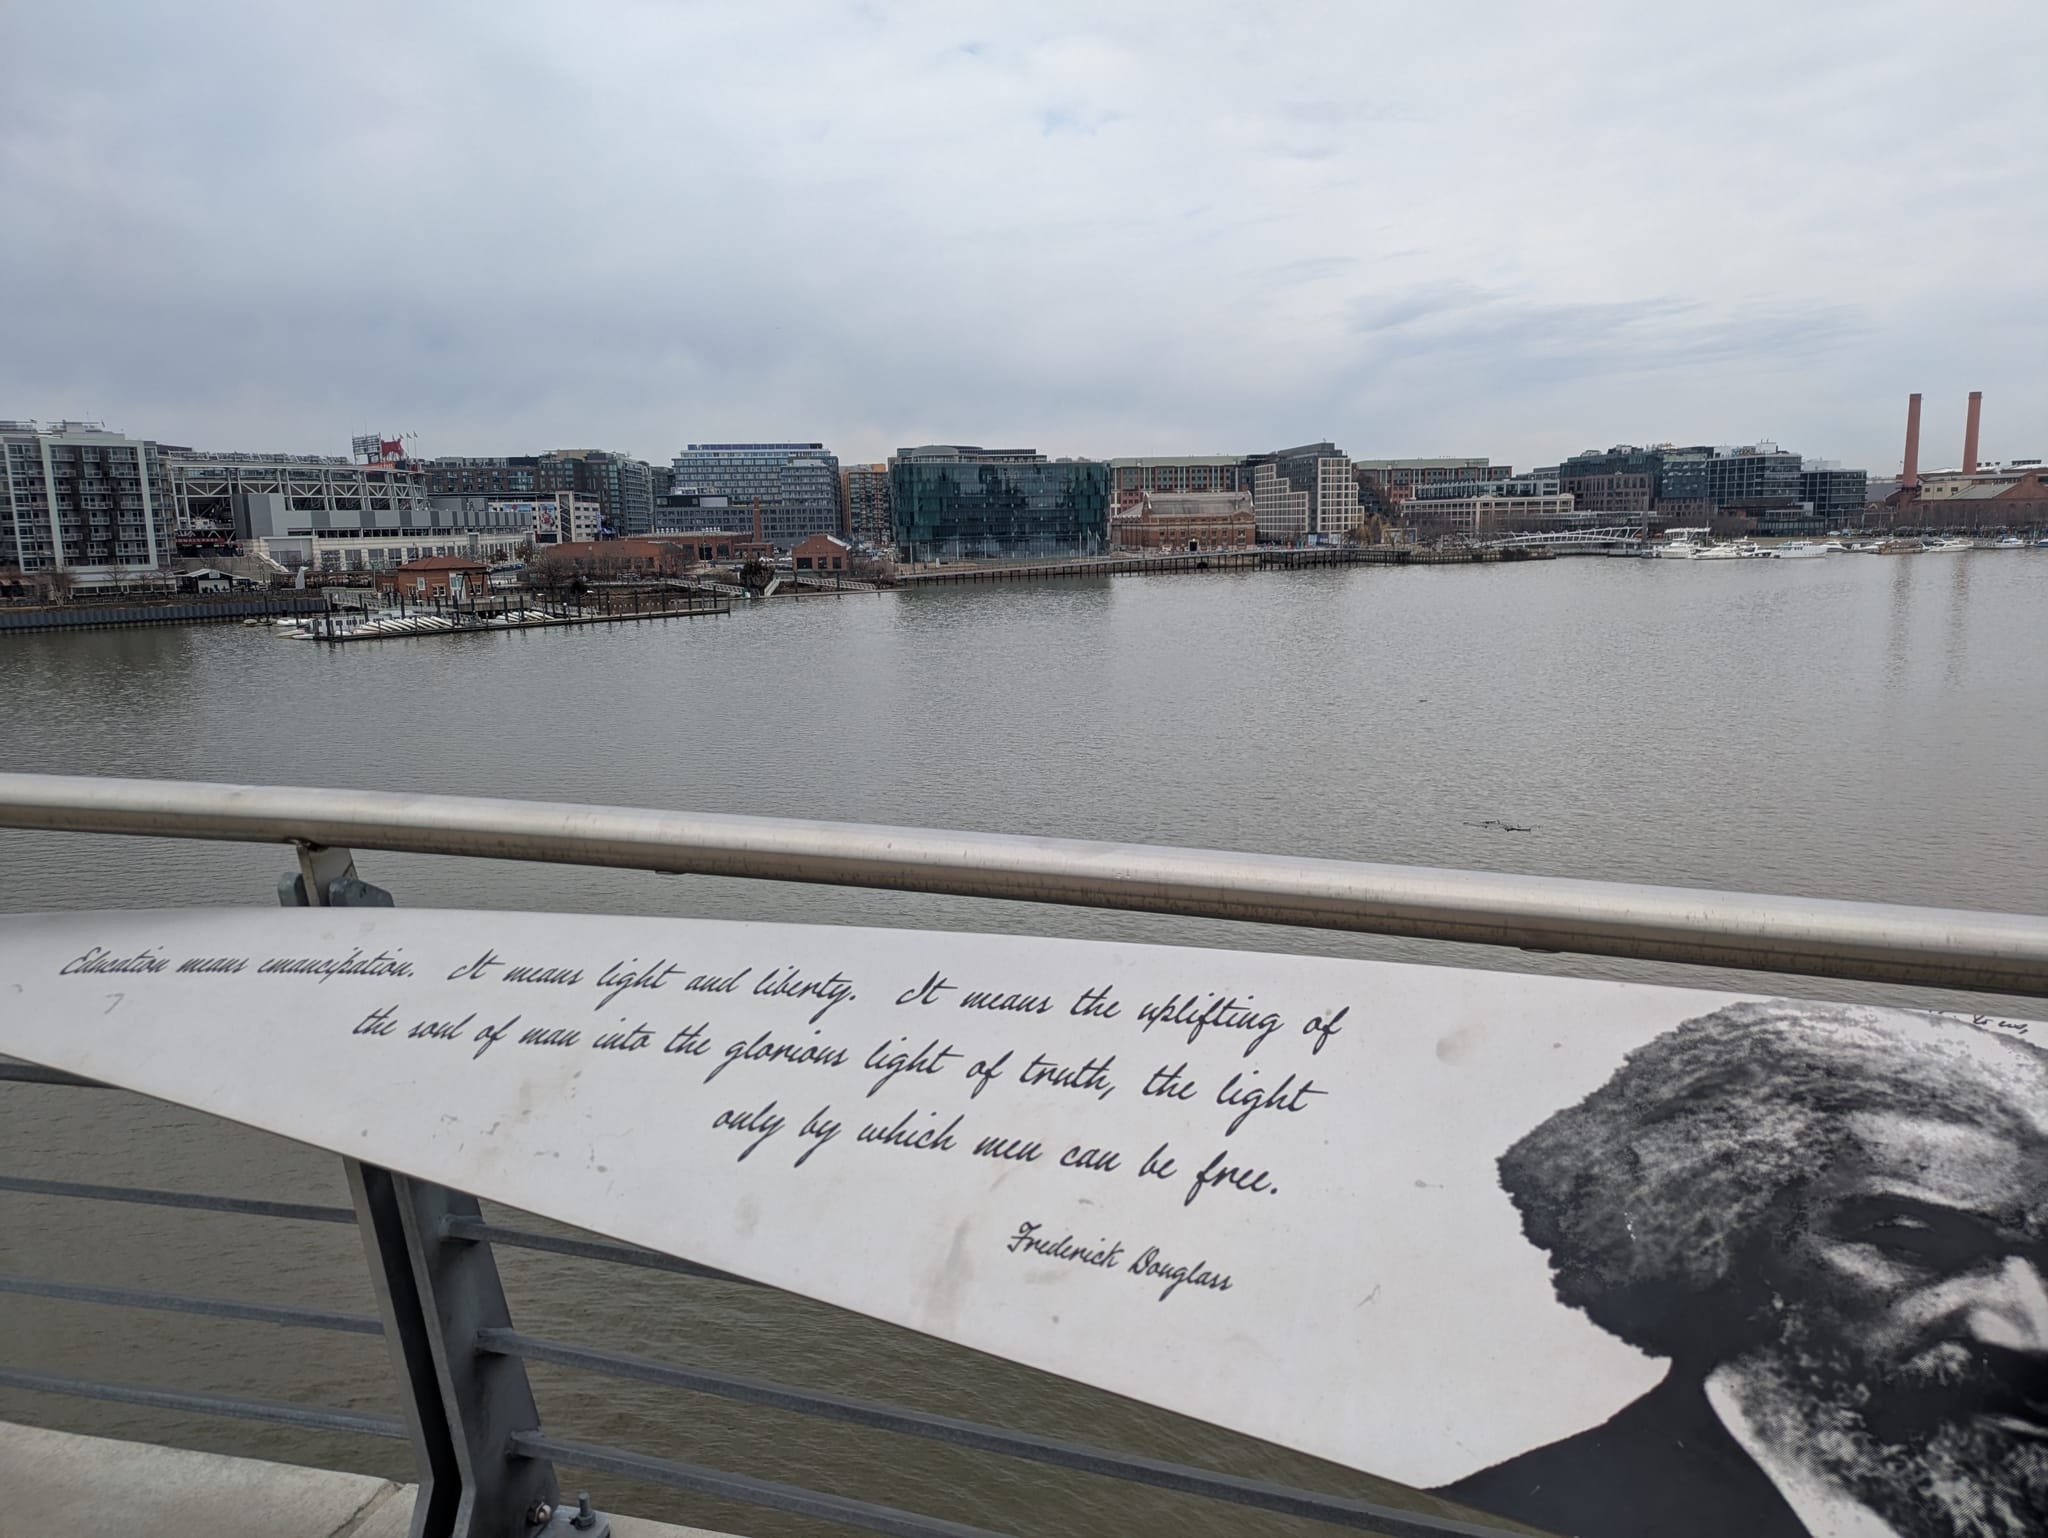 Education means emancipation. It means light and liberty. It means the uplifting of
the soul of man into the glorious light of truth, the light
only by which men can be free.
Frederick Douglass